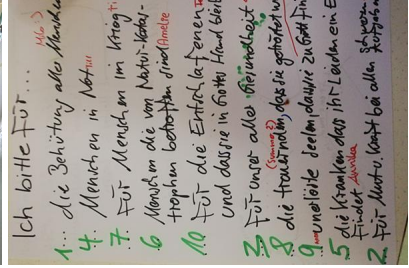 Ich bitte für...
1... die Behütung aller Menschen
4. Menschen in Not
7. Für Menschen im Krieg
6 Menschen die von Natur-Kata-
trophen betroffen sind (Amelie
10 Für die Entschlafenen
und dass sie in Gottes Hand bleib
3 Für unser aller Gesundheit
8 die trauernden, dass sie getröstet w
9 unerlöste Seelen, dass sie zu Gott fin
5 die Kranken dass ihr Leiden ein E
finder Annika
2 Für Mut u. Kraft bei allen